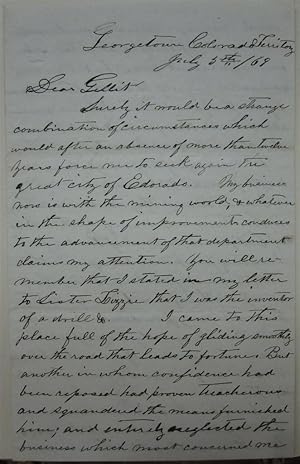 Georgetown Colorado Territory
July 5th /68
Dear Gillit
Surely it would be a strange
combination of circumstances which
would after an absence of more than twelve
years force me to seek again the
great city of Edorado. My business
now is with the mining world, & whatever
in the shape of improvement conduces
to the advancement of that department
claims my attention. You will re-
member that I stated in my letter
to Sister Lizzie that I was the inventor
of a drill &. I came to this
place full of the hope of gliding smoothly
over the road that leads to fortune. But
another in whom confidence had
been reposed had proven treacherous
and squandered the means furnished
him, and entirely neglected the
business which most concerned me